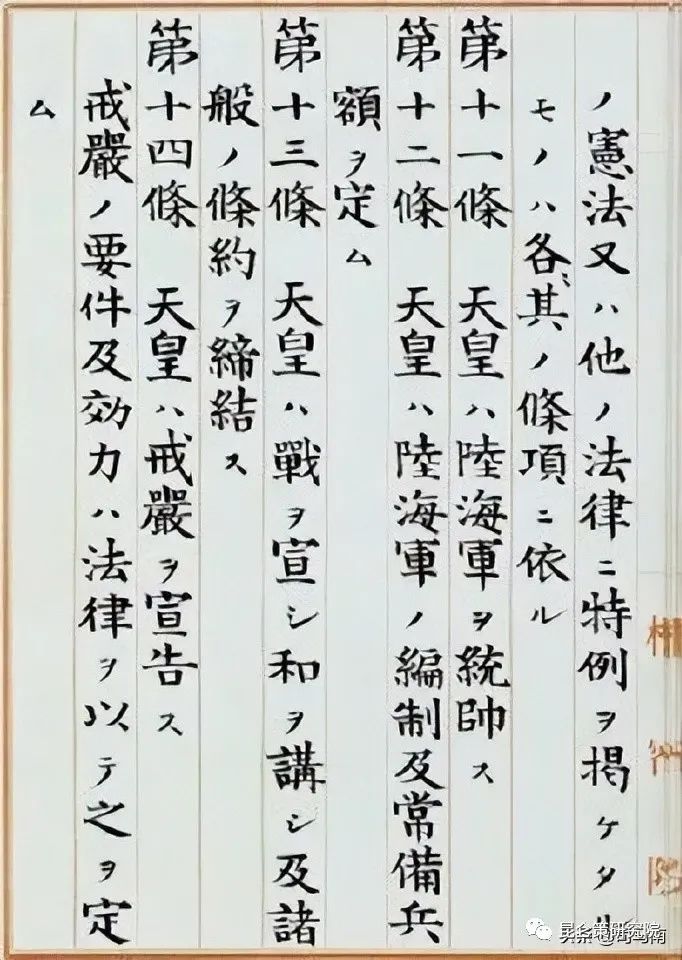 ノ憲法又ハ他ノ法律ニ特例ヲ掲ケタル
モノハ各〻其ノ條項ニ依ル
第十一條　天皇ハ陸海軍ヲ統帥ス
第十二條　天皇ハ陸海軍ノ編制及常備兵
額ヲ定ム
第十三條　天皇ハ戰ヲ宣シ和ヲ講シ及諸
般ノ條約ヲ締結ス
第十四條　天皇ハ戒嚴ヲ宣告ス
戒嚴ノ要件及効力ハ法律ヲ以テ之ヲ定
ム